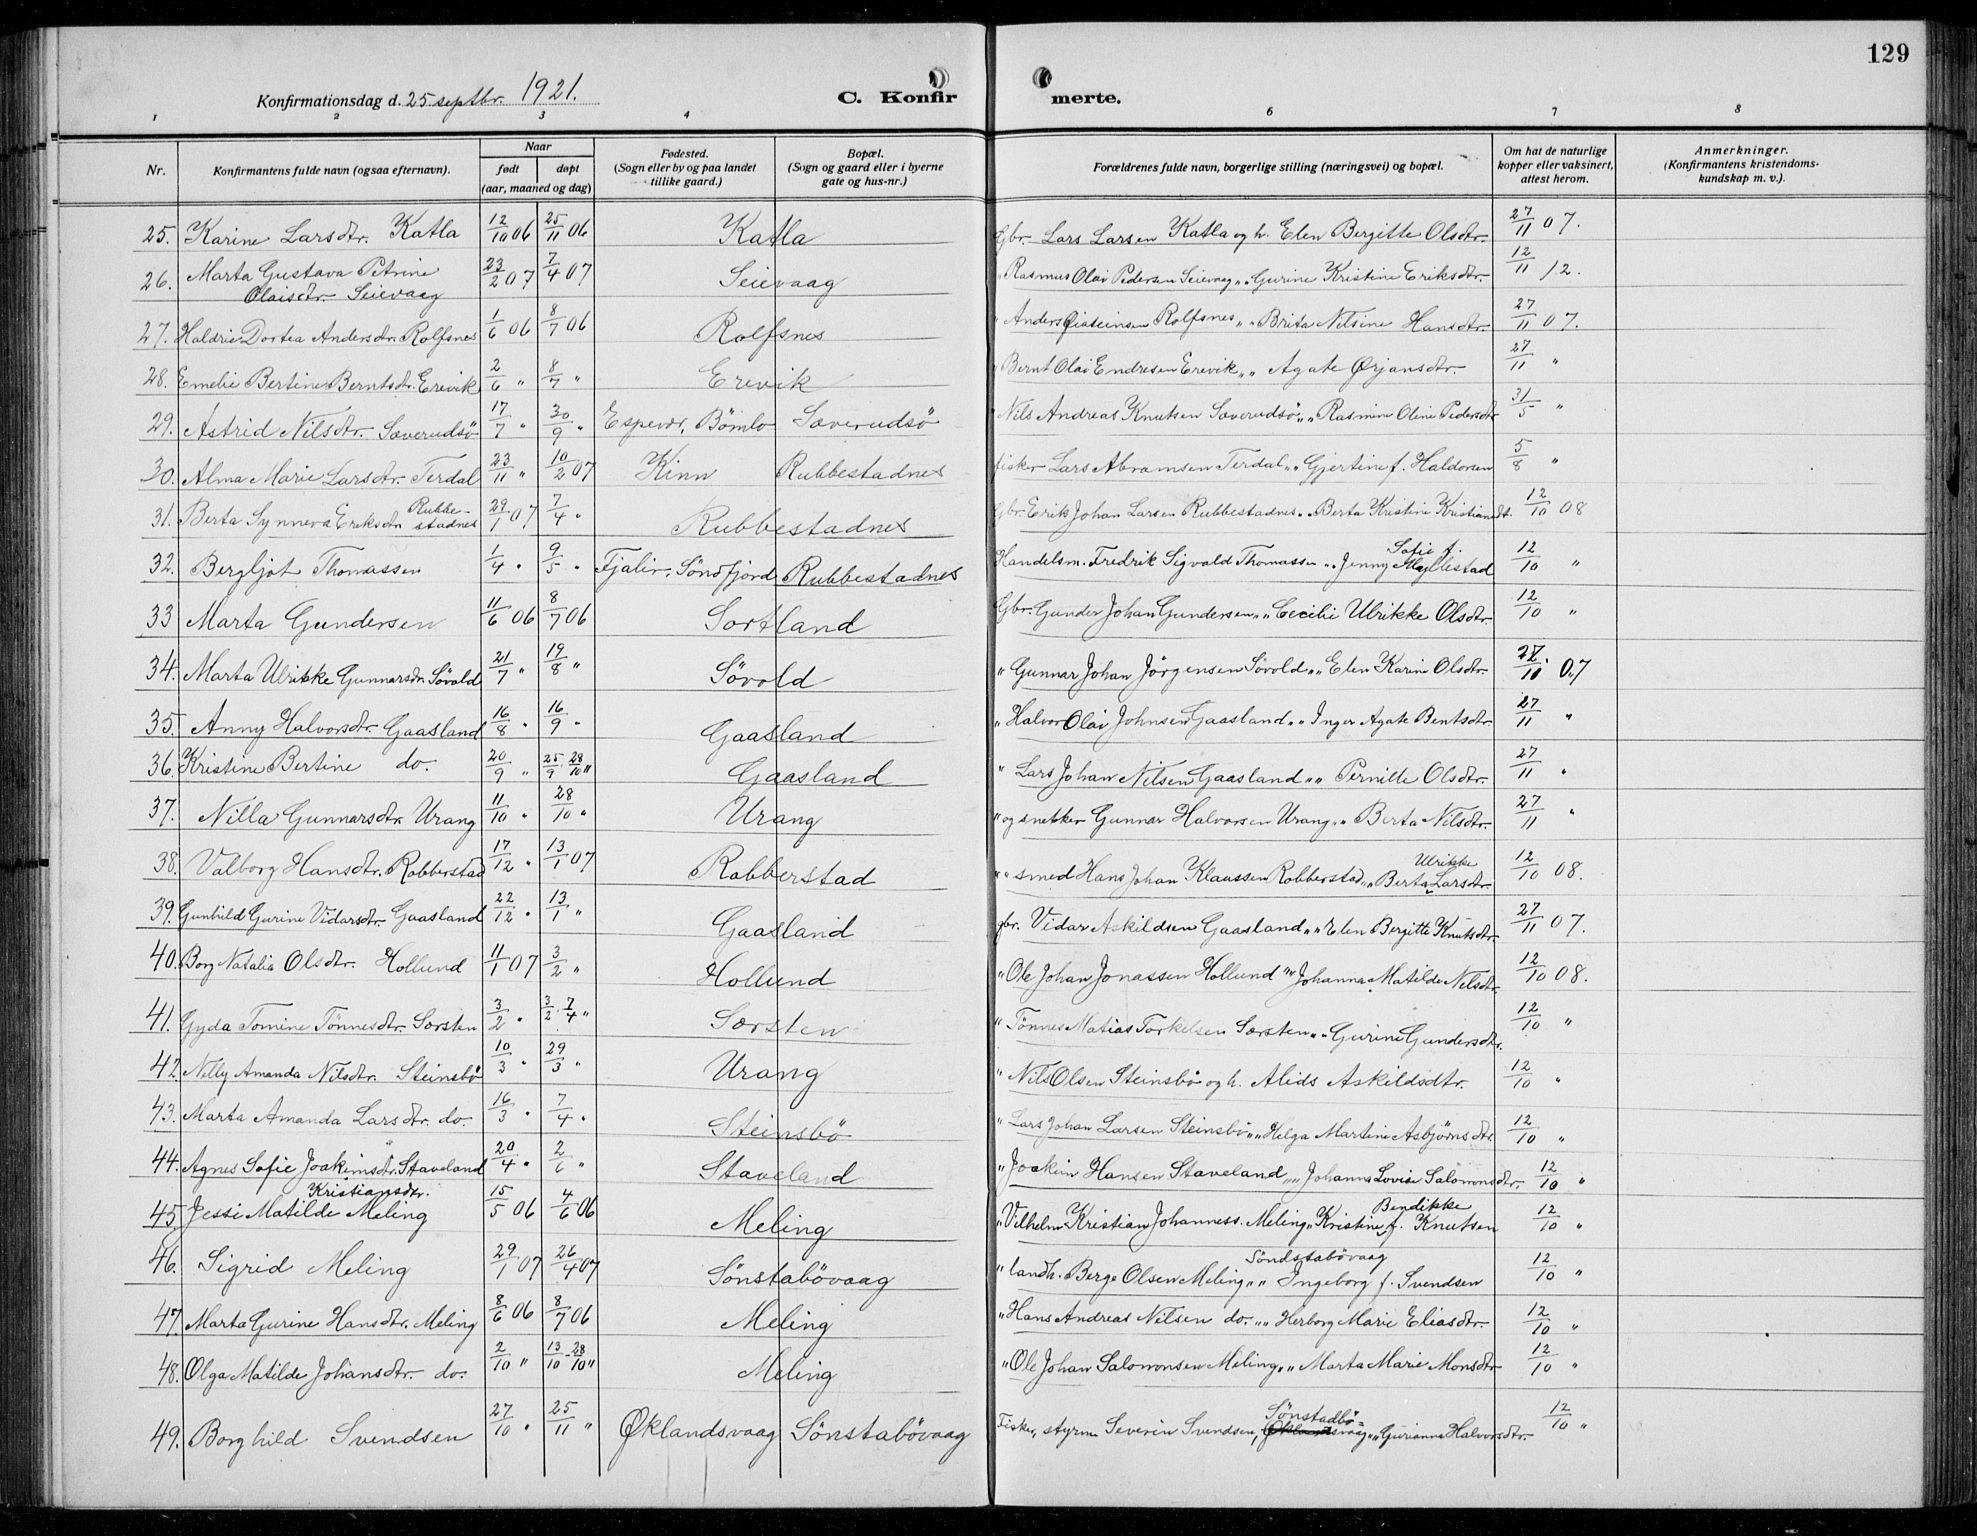 129
Konfirmationsdag d. 25 septbr. 1921.
C. Konfirmerte.
1 2 3 4 6 7 8
Nr. Konfirmantens fulde navn (ogsaa efternavn). Naar født døpt (aar, maaned og dag) Fødested. (Sogn eller by og paa landet tillike gaard.) Bopæl. (Sogn og gaard eller i byerne gate og hus-nr.) Forældrenes fulde navn, borgerlige stilling (næringsvei) og bopæl. Om hat de naturlige kopper eller vaksinert, attest herom. Anmerkninger. (Konfirmantens kristendoms-kundskap m. v.).
25. Karine Larsdtr. Katla 12/10 06 25/11 06 Katla Gbr. Lars Larsen Katla og h. Elen Bergitte Olsdtr. 27/11 07.
26. Marta Gustava Petrine Olaisdtr Seievaag 23/2 07 7/4 07 Seievaag " Rasmus Olai Pedersen Seievaag " " Gurine Kristine Eriksdtr. 12/11 12.
27. Haldrie Dortea Andersdtr. Rolfsnes 1/6 06 8/7 06 Rolfsnes " Anders Øisteinsen Rolfsnes " " Brita Nilsine Hansdtr. 27/11 07.
28. Emelie Bertine Berntsdtr. Erevik 2/6 " 8/7 " Erevik " Bernt Olai Endresen Erevik " " Agate Ørjansdtr. 27/11 "
29. Astrid Nilsdtr. Sæverudsö 17/7 " 30/9 " Espevær, Bömlo Sæverudsö " Nils Andreas Knutsen Sæverudsö " " Rasmine Oline Pedersdtr 31/5 "
30. Alma Marie Larsdtr. Terdal 23/11 " 10/2 07 Kinn Rubbestadnes fisker Lars Abramsen Terdal " " Gjertine f. Haldorsen 5/8 "
31. Berta Synneva Eriksdtr Rubbestadnes 29/1 07 7/4 " Rubbestadnes Gbr. Erik Johan Larsen Rubbestadnes " " Berta Kristine Kristiansdt. 12/10 08
32. Bergljot Thomassen 1/4 " 9/5 " Fjalir, Söndfjord Rubbestadnes Handelsm. Fredrik Sigvald Thomassen " " Jenny Sofie f. Myllestad 12/10 "
33 Marta Gundersen 11/6 06 8/7 06 Sortland Gbr. Gunder Johan Gundersen " " Cecilie Ulrikke Olsdtr. 12/10 "
34. Marta Ulrikke Gunnarsdtr. Sövold 21/7 " 19/8 " Sövold " Gunnar Johan Jörgensen Sövold " " Elen Karine Olsdtr. 27/11 07
35. Anny Halvorsdtr. Gaasland 16/8 " 16/9 " Gaasland " Halvor Olai Johnsen Gaasland " " Inger Agate Bentsdtr. 27/11 "
36. Kristine Bertine do. 20/9 " 25/9 - 28/10 " Gaasland " Lars Johan Nilsen Gaasland " " Pernille Olsdtr. 27/11 "
37. Nilla Gunnarsdtr. Urang 11/10 " 28/10 " Urang " og snekker Gunnar Halvorsen Urang " " Berta Nilsdtr. 27/11 "
38. Valborg Hansdtr. Robberstad 17/12 " 13/1 07 Robberstad " " smed Hans Johan Klaussen Robberstad " " Berta Ulrikke Larsdtr. 12/10 08.
39. Gunhild Gurine Vidarsdtr. Gaasland 22/12 " 13/1 " Gaasland gbr. Vidar Askildsen Gaasland " " Elen Bergitte Knutsdtr. 27/11 07.
40. Borg Natalia Olsdtr. Hollund 11/1 07 3/2 " Hollund " Ole Johan Jonassen Hollund " " Johanna Matilde Nilsdtr. 12/10 08.
41. Gyda Tomine Tönnesdtr. Sørsten 3/2 " 3/2 - 7/4 " Sørsten " Tönnes Matias Torkelsen Sørsten " " Gurine Gundersdtr. 12/10 "
42. Nelly Amanda Nilsdtr. Steinsbö 10/3 " 29/3 " Urang " Nils Olsen Steinsbö og h. Alids Askildsdtr. 12/10 "
43. Marta Amanda Larsdtr. do. 16/3 " 7/4 " Steinsbö " Lars Johan Larsen Steinsbö " " Helga Martine Asbjörnsdtr. 12/10 "
44. Agnes Sofie Joakimsdtr. Staveland 20/4 " 2/6 " Staveland " Joakim Hansen Staveland " " Johanna Lovise Salomonsdtr. 12/10 "
45. Jessi Matilde Kristiansdtr. Meling 15/5 06 4/6 06 Meling " Vilhelm Kristian Johanness. Meling " " Kristine Bendikke f. Knutsen 12/10 "
46. Sigrid Meling 29/1 07 26/4 07 Sönstabövaag " landh. Berge Olsen Meling " " Söndstabövaag Ingeborg f. Svendsen 12/10 "
47. Marta Gurine Hansdtr. Meling 8/6 06 8/7 06 Meling " Hans Andreas Nilsen do. " " Herborg Marie Eliasdtr. 12/10 "
48. Olga Matilde Johansdtr. do. 2/10 " 13/10 - 28/10 " Meling " Ole Johan Salomonsen Meling " " Marta Marie Monsdtr 12/10 "
49. Borghild Svendsen 27/10 " 25/11 " Øklandsvaag Sönstabövaag Fisker, styrm. Severin Svendsen, Sönstadbö= Øklandsvaag " " Gurianna Halvorsdtr. 12/10 "